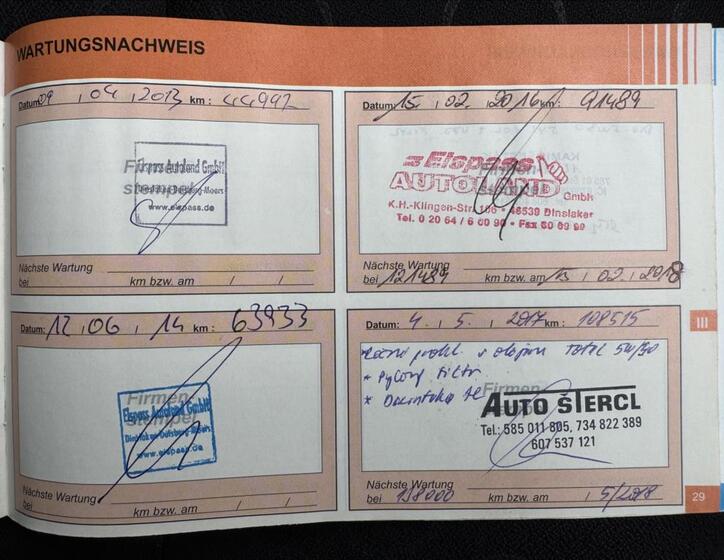 WARTUNGSNACHWEIS
Datum: 09 , 04 , 2013 km : 44992
Firmen-
stempel
Elspass Autoland GmbH
Dinslaken-Duisburg-Moers
www.elspass.de
Nächste Wartung
bei km bzw. am / /
Datum: 12 , 06 , 14 km : 63933
Firmen-
stempel
Elspass Autoland GmbH
Dinslaken-Duisburg-Moers
www.elspass.de
Nächste Wartung
bei km bzw. am / /
Datum: 15 , 02 , 2016 km : 91489
Elspass
AUTOLAND GmbH
K.H.-Klingen-Str. 106 • 46539 Dinslaken
Tel. 0 20 64 / 6 00 90 • Fax 60 09 99
Nächste Wartung
bei 121489 km bzw. am 15 / 02 / 2018
Datum: 4 . 5 , 2017 km : 108515
olejem TOTAL 5W/30
* Pylový filtr
*
Firmen-
AUTO ŠTERCL
Tel.: 585 011 805, 734 822 389
607 537 121
Nächste Wartung
bei 138000 km bzw. am 5/2018
III
29